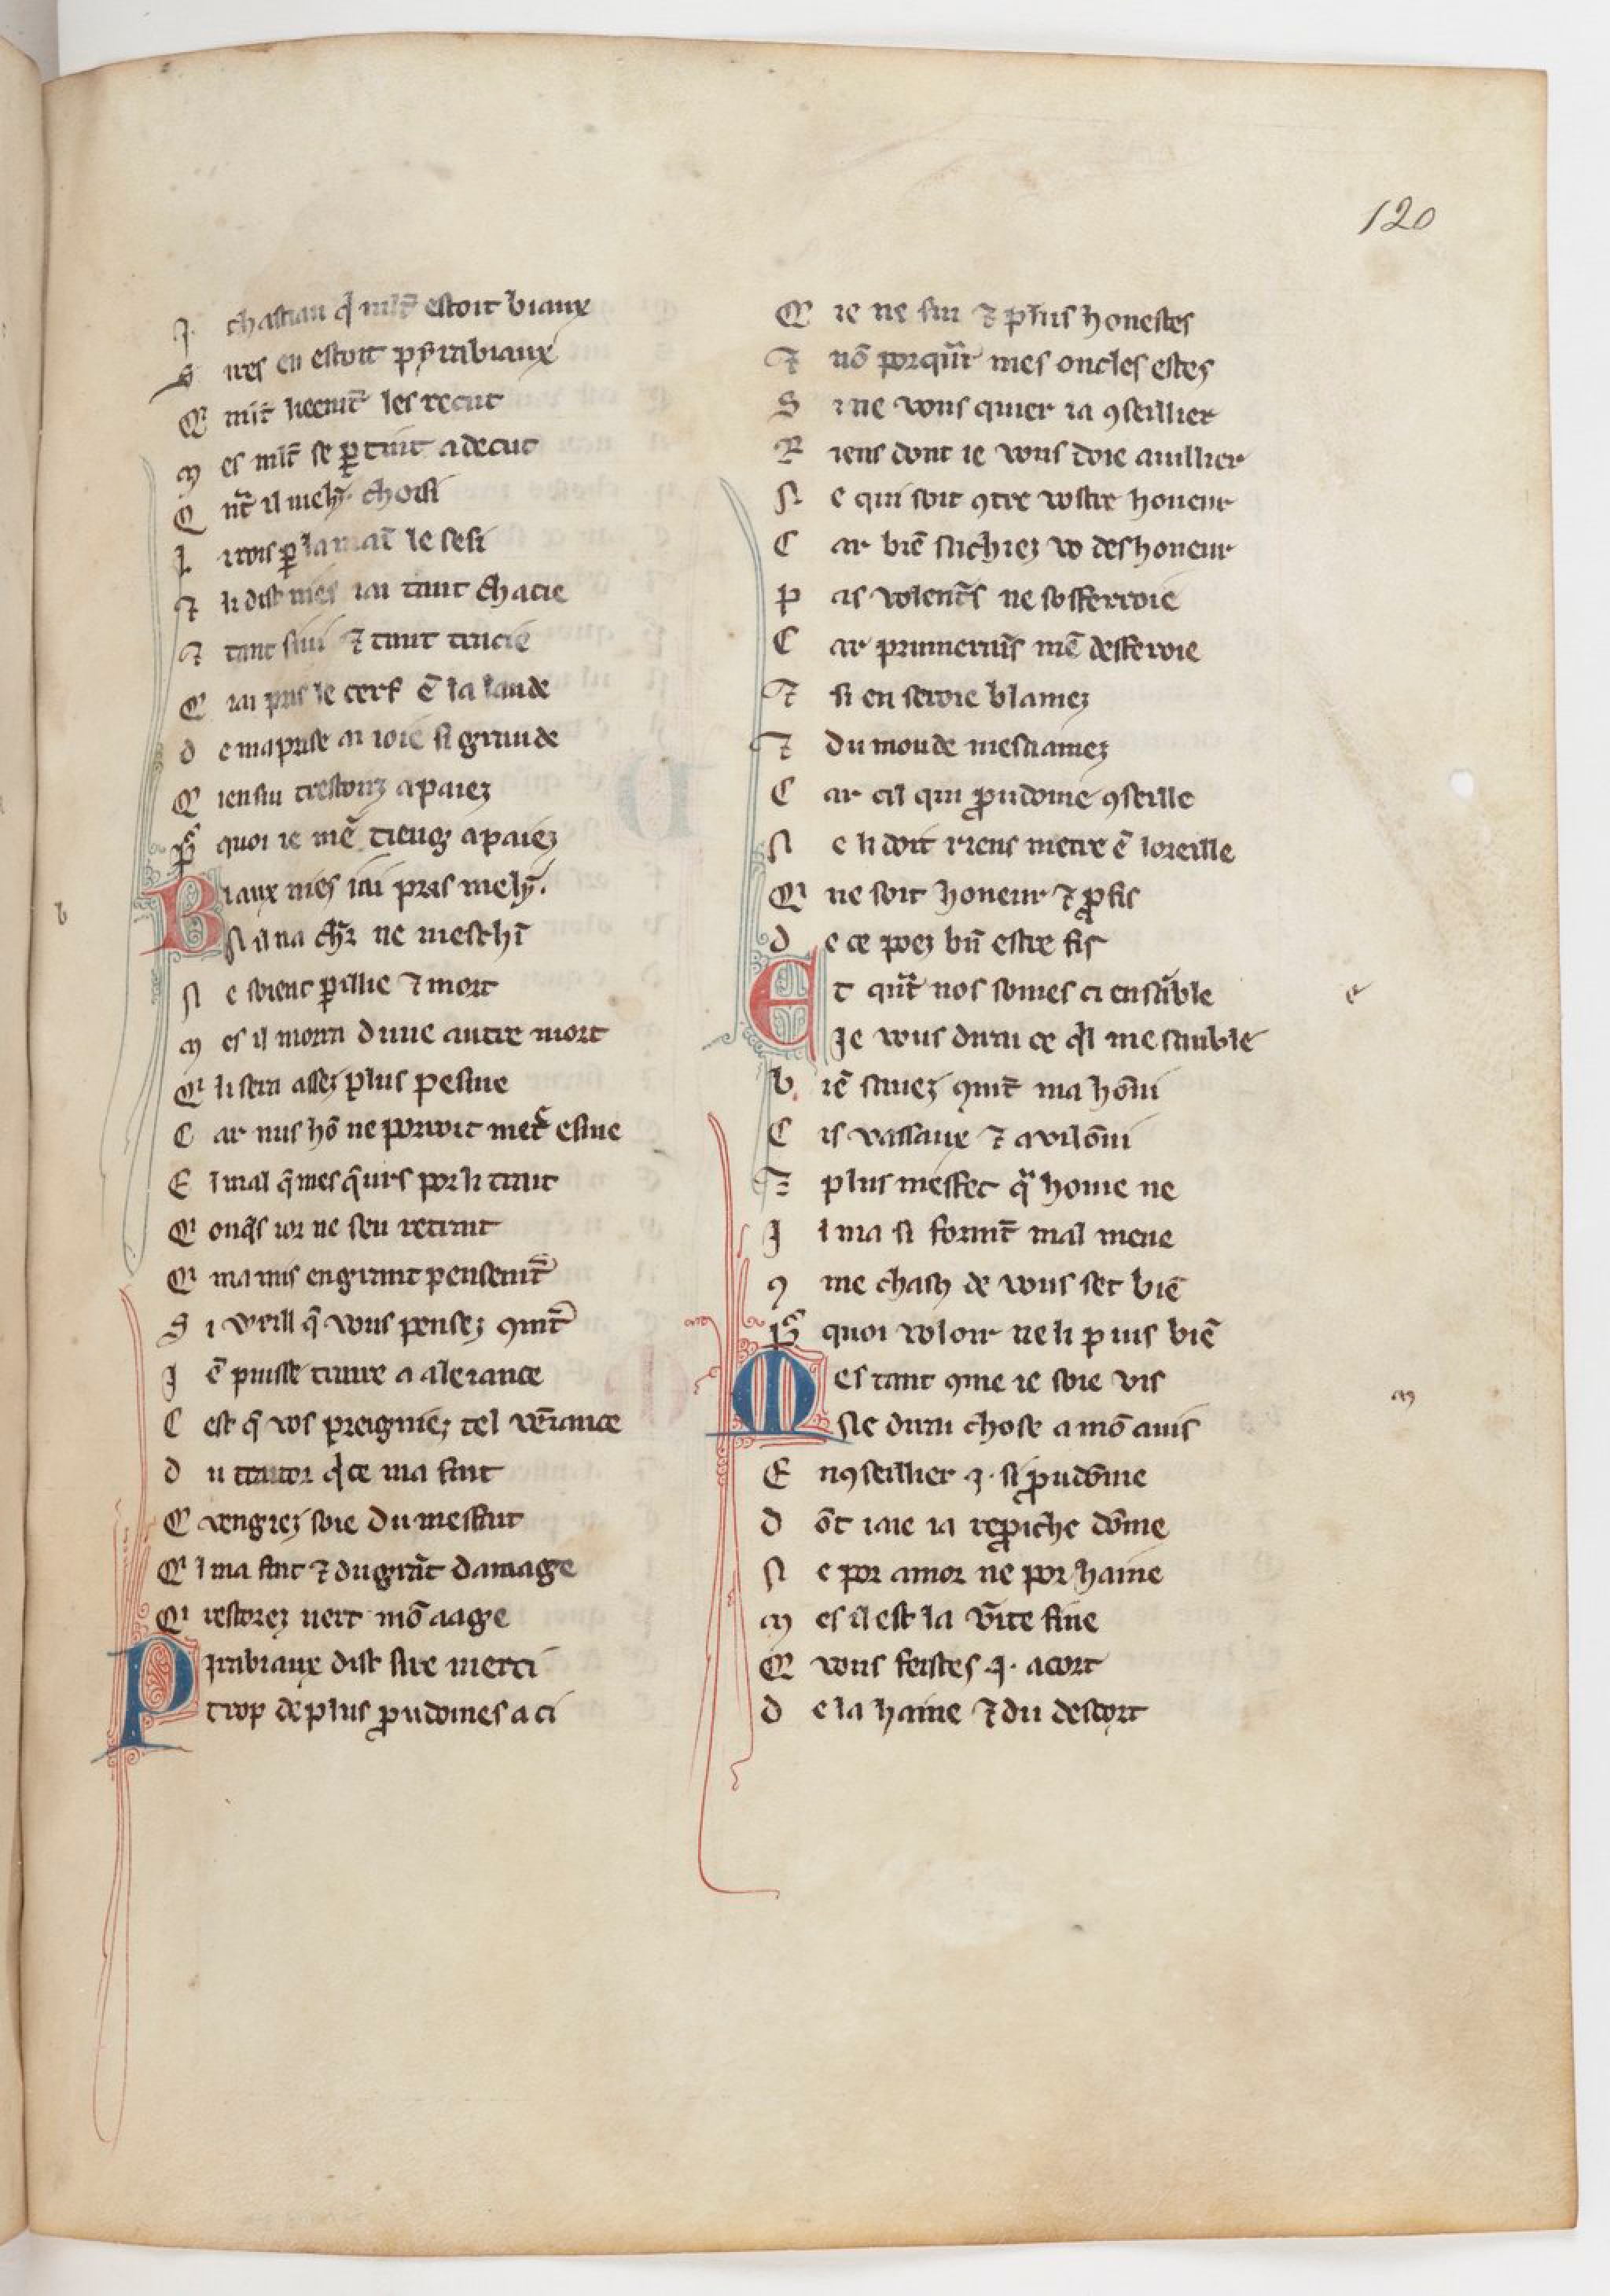 120
I chastiau q̃ ml̃t estoit biaux
S ires en estoit pẏrabiaux
Q̃ ml̃t lieemt̃ les recut
M es ml̃t se ꝑ tint a decut
Q nt̃ il melẏ. choisi
L irois ꝑ la maĩ le sesi
⁊ li dist nies iai tant chacie
⁊ tant sui ⁊ tant tracie
Q iai pris le cerf ẽ la lande
D e ma prise ai ioie si grande
Q ien sui trestouz apaiez
P̃ quoi ie mẽ tieng apaiez
B iaux nies iai pris melẏ.
N il na chr̃ ne meschĩ
N e soient ꝑillie ⁊ mort
M es il morra dune autre mort
Qi li sera assez plus pesme
C ar nus hõ ne porroit metr̃ esme
E l mal q̃ mes q̃urs por li trait
Qi onq̃s ior ne sen retrait
Qi ma mis en grant pensemt̃
S i weill q̃ vous pensez ꝯmt̃
I ẽ puisse traire a aleiance
C est q̃ vos preigniez tel vẽiance
D u traitor q̃ ce ma fait
Q vengiez soie du mesfait
Qi l ma fait ⁊ du grãt damage
Qi restorez iiert mõ aage
P irabiaux dist sire merci
trop de plus ꝓudomes a ci
Q ie ne sui ⁊ plus honestes
⁊ nõ porquãt mes oncles estes
S i ne vous quier ia ꝯseillier
R iens dont ie vous doie auillier
N e qui soit ꝯtre vostre honeur
C ar biẽ sachiez vo deshoneur
P as volentr̃s ne sosferroie
C ar primerains mẽ desferoie
⁊ si en seroie blamez
⁊ du monde mesaamez
C ar cil qui ꝓudome ꝯseille
N e li doit riens metre ẽ loreille
Qi ne soit honeur ⁊ ꝓfis
D e ce poez bñ estre fis
E t quãt nos somes ci ensãble
Ie vous dirai ce q̃l me samble
B iẽ sauez ꝯmt̃ ma hõni
C is vassaux ⁊ a vilõni
⁊ plus mesfet q̃ home ne
I l ma si formt̃ mal mene
ꝯ me chasc̃ de vous set biẽ
P̃ quoi voloir ne li puis biẽ
M es tant ꝯme ie soie vis
Ne dirai chose a mõ auis
E nꝯseillier .i. si ꝓudõme
D õt iaie ia reproiche dõme
N e por amor ne por haine
M es il est la ṽite fine
Q vous feistes .i. acort
D e la haine ⁊ du descort
b
e
m